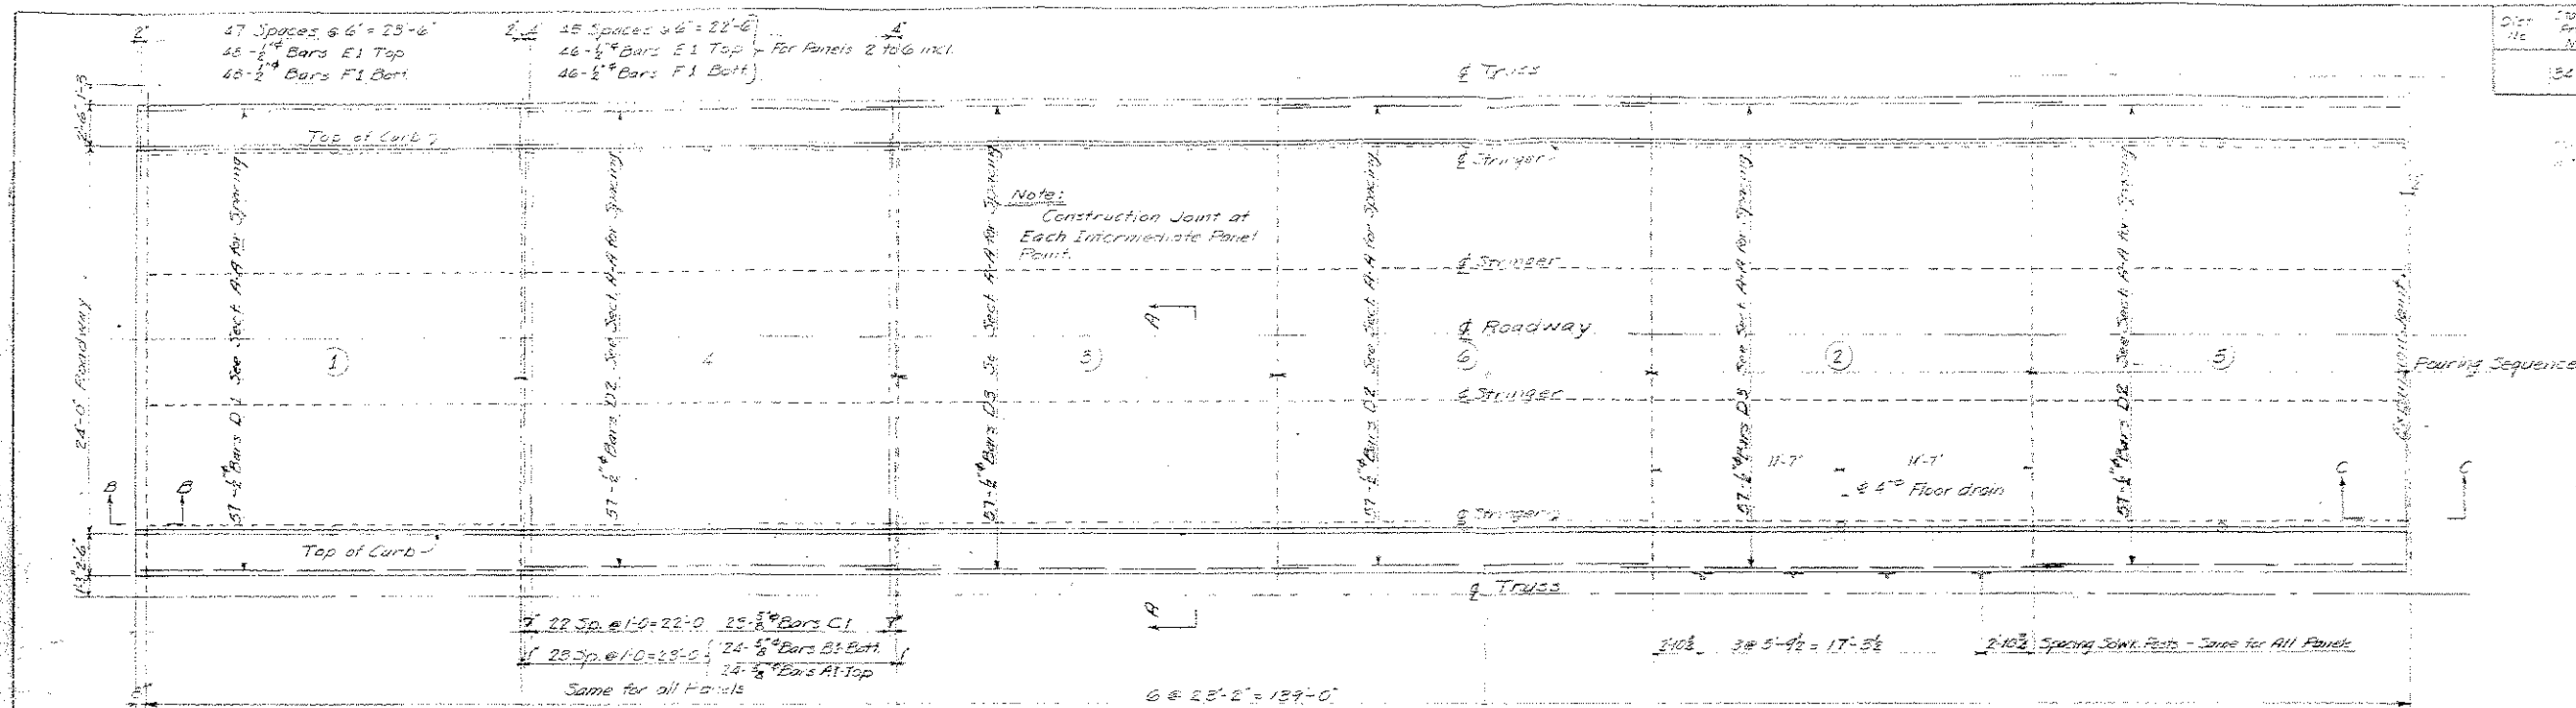 2"
47 Spaces @ 6" = 23'-6"
48-½"ᶲ Bars E1 Top
48-½"ᶲ Bars F1 Bott.
2" 4"
45 Spaces @ 6" = 22'-6"
46-½"ᶲ Bars E1 Top
46-½"ᶲ Bars F1 Bott.
For Panels 2 to 6 incl.
4"
Dist
No
℄ Truss
1'-3
2'-6"
Top of Curb
℄ Stringer
Note:
Construction Joint at
Each Intermediate Panel
Point.
℄ Stringer
24'-0" Roadway
57-½"ᶲ Bars D1 See Sect. A-A for Spacing
57-½"ᶲ Bars D2 See Sect. A-A for Spacing
57-½"ᶲ Bars D3 Se Sect. A-A for Spacing
57-½"ᶲ Bars D2 See Sect. A-A for Spacing
57-½"ᶲ Bars D3 See Sect. A-A for Spacing
57-½"ᶲ Bars D2 See Sect. A-A for Spacing
A
℄ Roadway
1
4
3
6
2
5
Pouring Sequence
Expansion Joint
℄ Stringer
11'-7"
11'-7"
℄ 4"ᶲ Floor drain
B
B
C
C
℄ Stringer
Top of Curb
2'-6"
℄ Truss
A
7" 22 Sp. @ 1'-0 = 22'-0 23-⅝"ᶲ Bars C1 7"
1" 23 Sp. @ 1'-0 = 23'-0 24-⅝"ᶲ Bars B1-Bott. 1"
24-⅝"ᶲ Bars A1-Top
Same for all Panels
2'-10¾ 3 @ 5'-9½ = 17'-5½ 2'-10¾ Spacing Sdwk. Posts - Same for All Panels
6 @ 23'-2" = 139'-0"